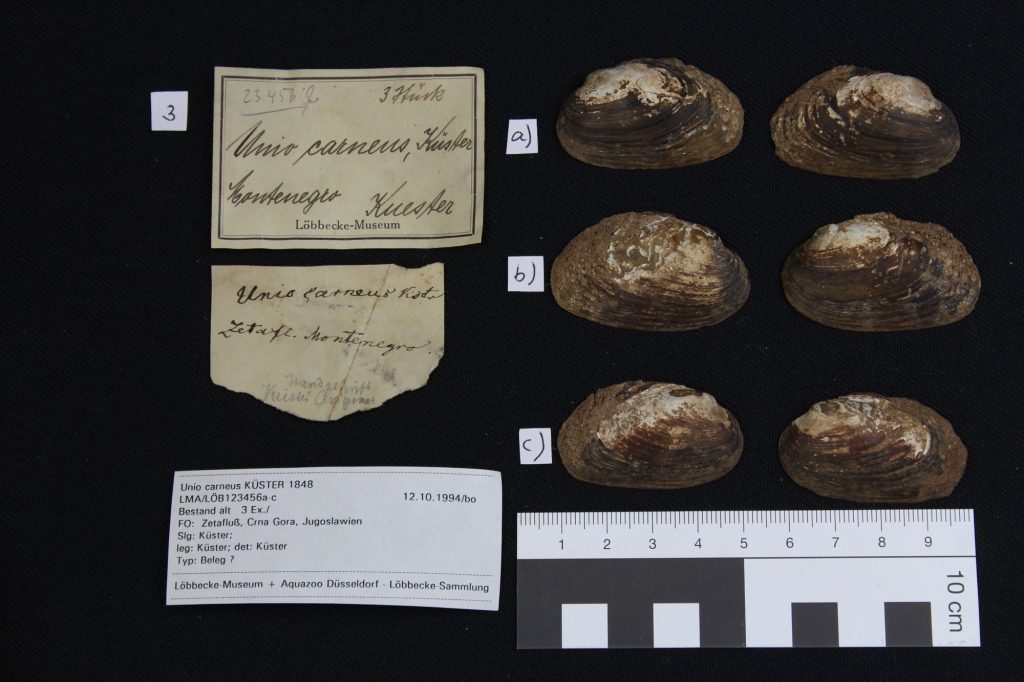 3
23456 
3 Stück
Unio carneus, Küster
Montenegro Kuester
Löbbecke-Museum
Unio carneus
Zetafl. Montenegro.
Handschrift
Küster Original
Unio carneus KÜSTER 1848
LMA/LÖB123456a-c 12.10.1994/bo
Bestand alt 3 Ex./
FO: Zetafluß, Crna Gora, Jugoslawien
Slg: Küster;
leg: Küster; det: Küster
Typ: Beleg ?
Löbbecke-Museum + Aquazoo Düsseldorf - Löbbecke-Sammlung
a)
b)
c)
1 2 3 4 5 6 7 8 9
10 cm